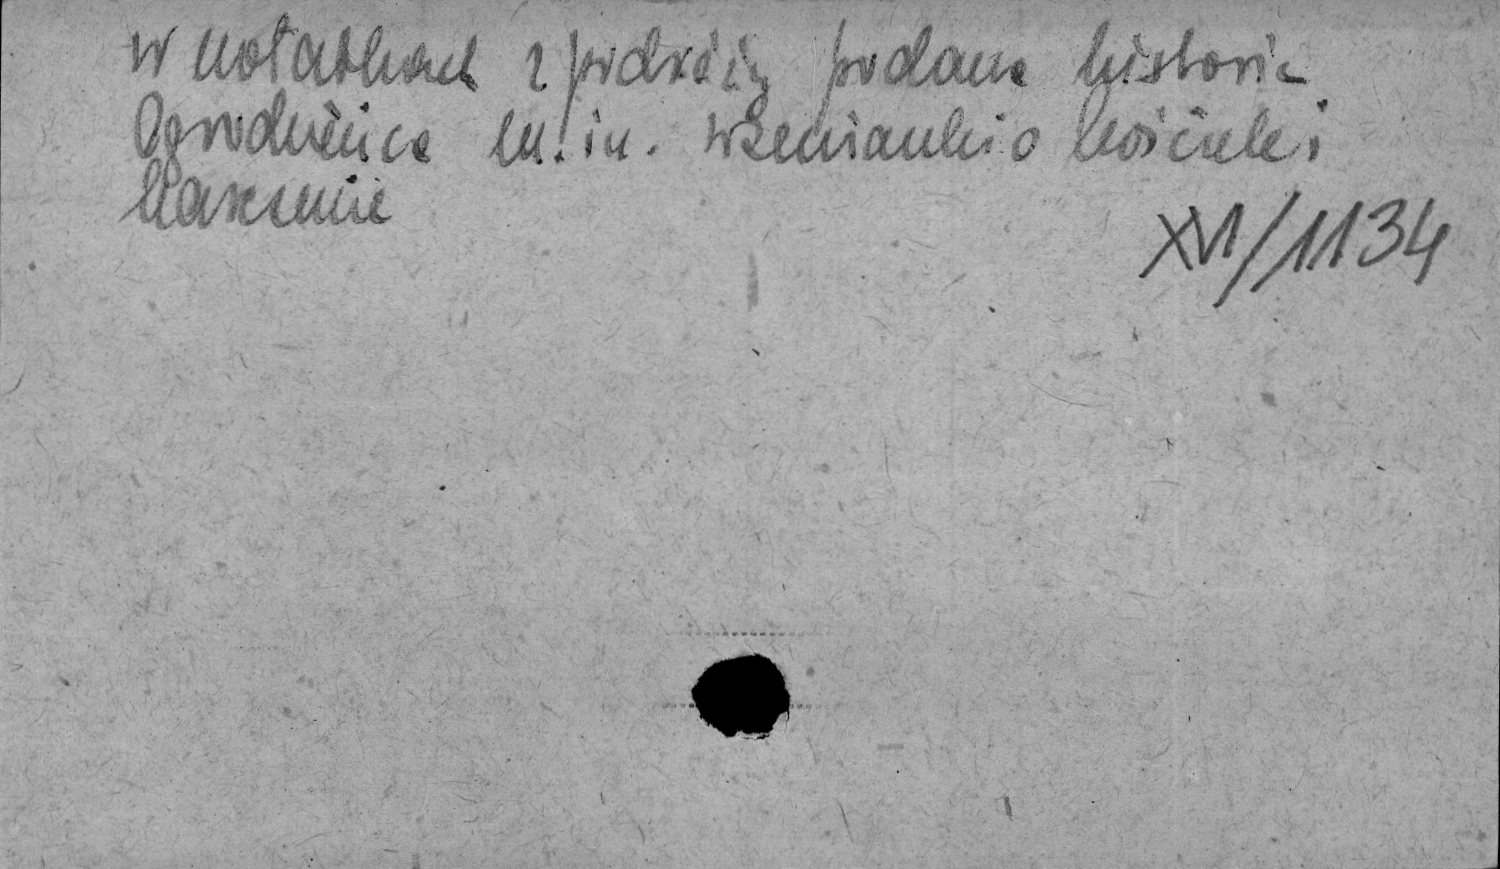 W notatkach z podróży podana historia
Ogrodzieńca m.in. wzmianki o kościele i
XVI/1134